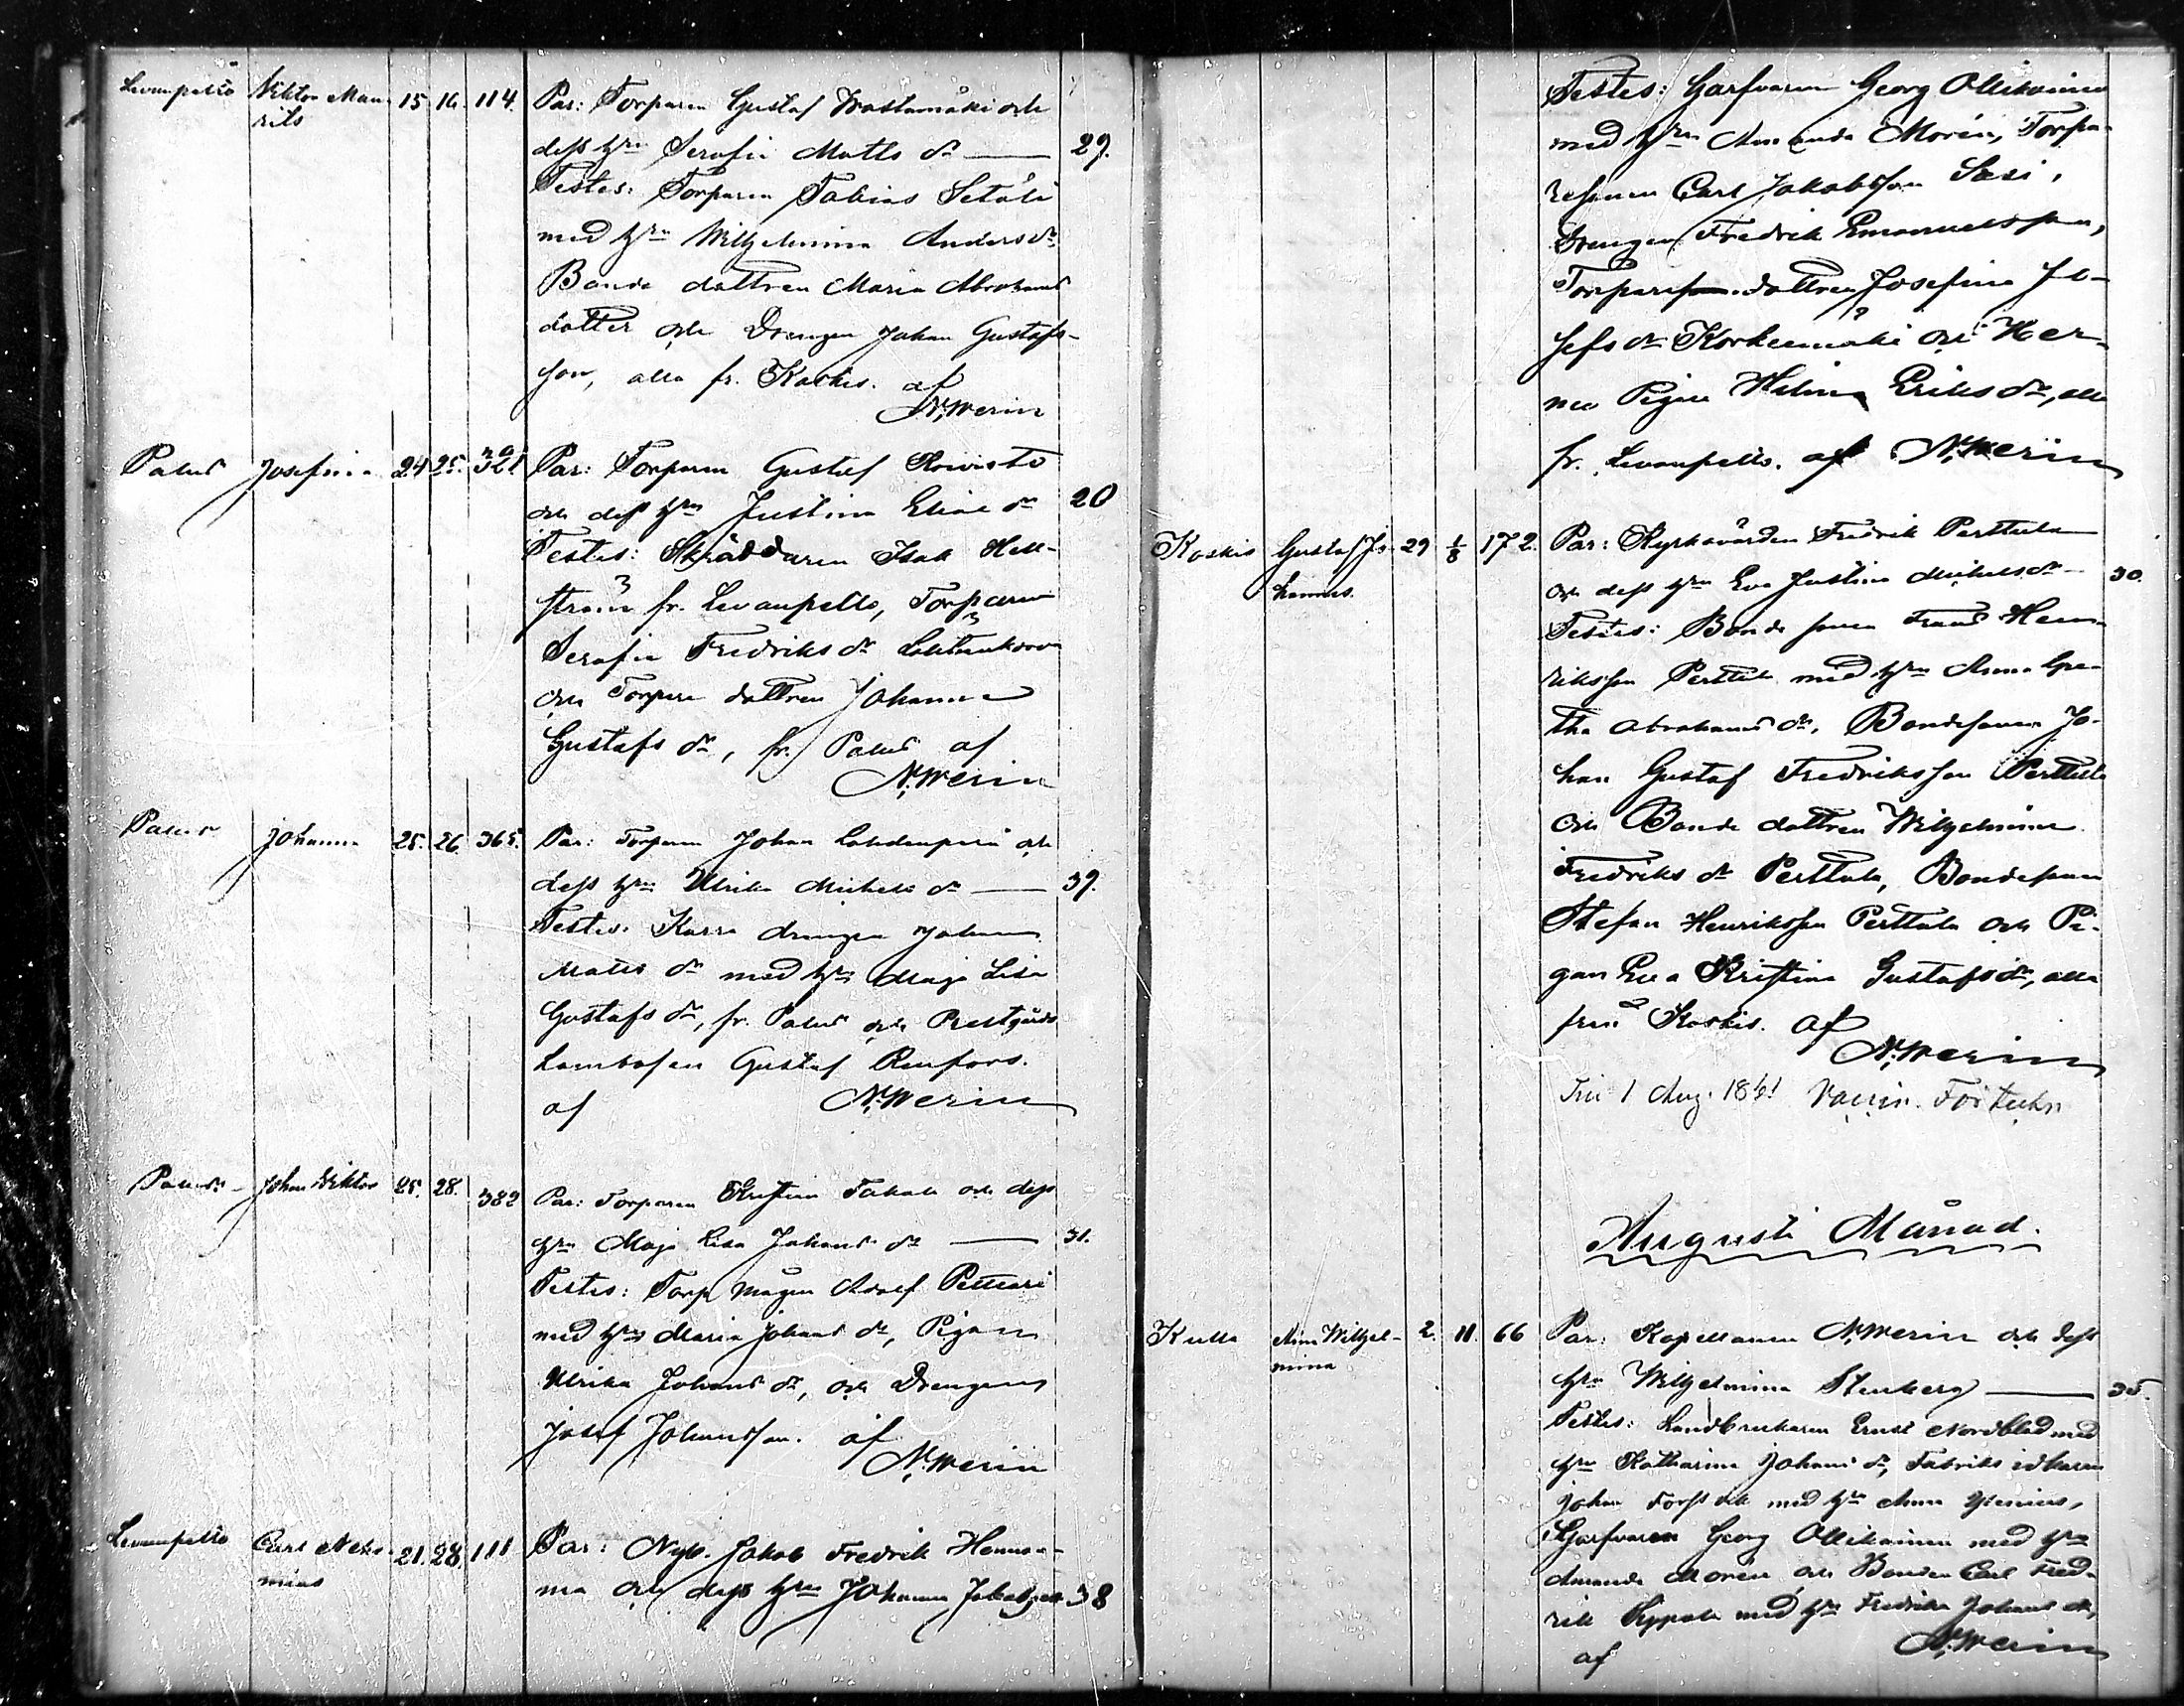 Levanpelto Viktor Mau- 15. 16. 114. Par: Torparen Gustaf Wastamäki och
rits dess h:ru Serafia Matts dr — 29.
Testes: Torparen Tobias Setälä
med h:ru Wilhelmina Anders dr
Bonde dottren Maria Abrahams
dotter och Drengen Johan Gustafs-
son, alla fr. Koskis. af
N. Merin
Palus Josefina 24 25. 321 Par: Torparen Gustaf Koivisto
och dess h:ru Justina Elias dr 20
Testes: Skräddaren Isak Hell-
ström fr. Levanpelto, Torparen
Serafia Fredriks dr
och Torpare dottren Johanna
Gustafs dr, fr. Palus af
N. Merin
Palus Johanna 25. 26. 365. Par: Torparen Johan Lahdenperä och
dess h:ru Ulrika Michels dr — 39.
Testes. Karra drengen Johan
Matts dr med h:ru Maja Lisa
Gustafs dr, fr. Palus och Prestgårds
Gustaf Renfors.
af N. Merin
Palus Johan Viktor 25. 28. 382 Par: Torparen Kristian Takala och dess
h:ru Maja Lisa Johans dr — 31.
Testes: Torp mågen Adolf Pelttari
med h:ru Maria Johans dr, Pigan
Ulrika Johans dr, och Drengen
Josef Johansson. af
N. Merin
Levanpelto Carl Nehe- 21. 28. 111 Par: Nyb. Jakob Fredrik
mias och dess h:ru Johanna 38
Testes: Garfvaren Georg Ollikainen
med h:ru Amanda Morén, Torpa-
resonen Carl Jakobsson Sasi,
Drengen Fredrik Emanuelsson,
Torpare dottren Josefina Jo-
sefs dr Korkeemäki och
Pigan Helena Eriks dr, alla
fr. Levanpelto. af N. Merin
Koskis Gustaf Jo- 29 1/8 172. Par: Kyrkovärden Fredrik Perttula
hannes. och dess h:ru Eva Justina Michels dr — 30.
Testes: Bonde sonen Frans Hen-
riksson Perttula med h:ru Anna Gre-
tha Abrahams dr, Bondesonen Jo-
han Gustaf Fredriksson Perttula
och Bonde dottren Wilhelmina
Fredriks dr Perttula, Bondesonen
Stefan Henriksson Perttula och Pi-
gan Eva Kristina Gustafs dr, alla
från Koskis. af
N. Merin
1 Aug. 1861
Augusti Månad.
Kulla Alma Wilhel- 2. 11. 66 Par: Kapellanen N. Merin och dess
mina h:ru Wilhelmina Stenberg — 35.
Testes: Landbrukaren Ernst Nordblad med
h:ru Katharina Johans dr, Fabriks idkaren
Johan med h:ru Anna
Garfvaren Georg Ollikainen med h:ru
Amanda Morén och Bonden Carl Fred-
rik Seppälä med h:ru Fredrika Johans dr,
af N. Merin